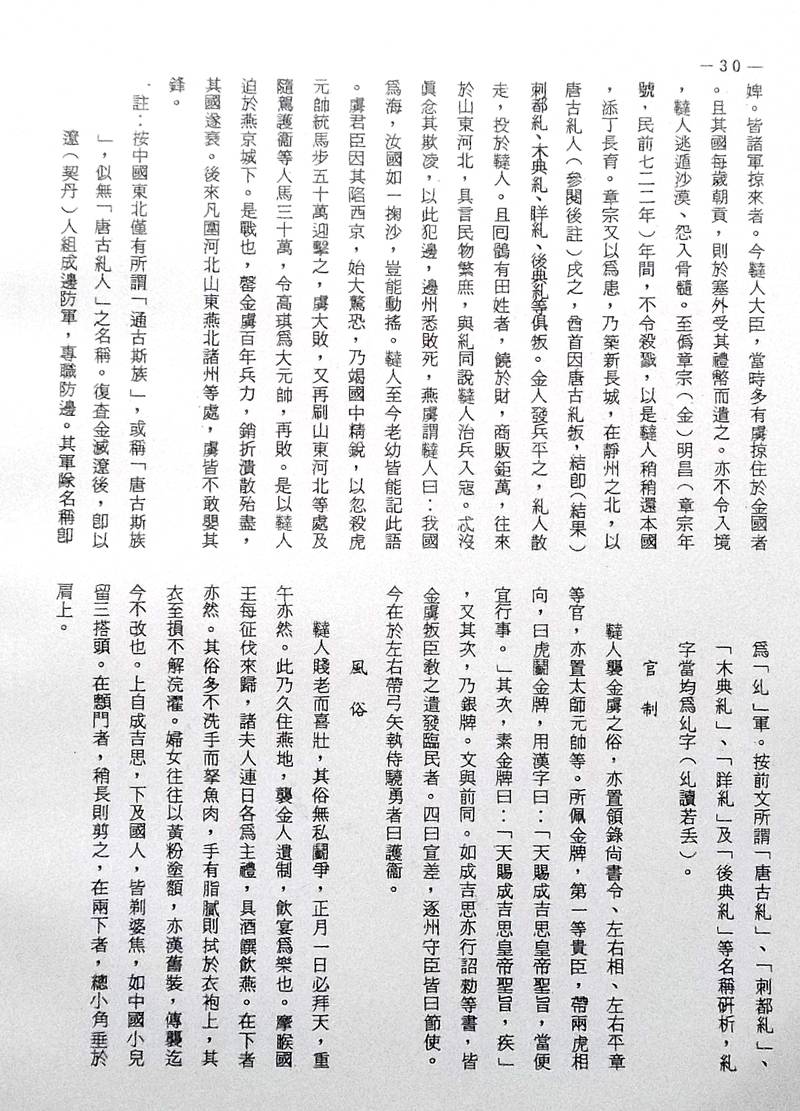 —30—
婢。皆諸軍掠來者。今韃人大臣，當時多有虜掠住於金國者
。且其國每歲朝貢，則於塞外受其禮幣而遣之。亦不令入境
，韃人逃遁沙漠、怨入骨髓。至僞章宗（金）明昌（章宗年
號，民前七二二年）年間，不令殺戮，以是韃人稍稍還本國
，添丁長育。章宗又以爲患，乃築新長城，在靜州之北，以
唐古糺人（參閱後註）戍之，酋首因唐古糺叛，結卽（結果）
刺都糺、木典糺、咩糺、後典糺等俱叛。金人發兵平之，糺人散
走，投於韃人。且囘鶻有田姓者，饒於財，商販鉅萬，往來
於山東河北，具言民物繁庶，與糺同說韃人治兵入寇。忒沒
眞忿其欺凌，以此犯邊，邊州悉敗死，燕虜謂韃人曰：我國
爲海，汝國如一掬沙，豈能動搖。韃人至今老幼皆能記此語
。虜君臣因其陷西京，始大驚恐，乃竭國中精銳，以忽殺虎
元帥統馬步五十萬迎擊之，虜大敗，又再刷山東河北等處及
隨駕護衞等人馬三十萬，令高琪爲大元帥，再敗。是以韃人
迫於燕京城下。是戰也，罄金虜百年兵力，銷折潰散殆盡，
其國遂衰。後來凡圍河北山東燕北諸州等處，虜皆不敢嬰其
鋒。
註：按中國東北僅有所謂「通古斯族」，或稱「唐古斯族
」，似無「唐古糺人」之名稱。復查金滅遼後，卽以
遼（契丹）人組成邊防軍，專職防邊。其軍隊名稱卽
爲「乣」軍。按前文所謂「唐古糺」、「刺都糺」、
「木典糺」、「咩糺」及「後典糺」等名稱硏析，糺
字當均爲乣字（乣讀若丢）。
官制
韃人襲金虜之俗，亦置領錄尙書令、左右相、左右平章
等官，亦置太師元帥等。所佩金牌，第一等貴臣，帶兩虎相
向，曰虎鬬金牌，用漢字曰：「天賜成吉思皇帝聖旨，當便
宜行事。」其次，素金牌曰：「天賜成吉思皇帝聖旨，疾」
，又其次，乃銀牌。文與前同。如成吉思亦行詔勅等書，皆
金虜叛臣敎之遣發臨民者。四曰宣差，逐州守臣皆曰節使。
今在於左右帶弓矢執侍驍勇者曰護衞。
風俗
韃人賤老而喜壯，其俗無私鬬爭，正月一日必拜天，重
午亦然。此乃久住燕地，襲金人遺制，飮宴爲樂也。摩睺國
王每征伐來歸，諸夫人連日各爲主禮，具酒饌飮燕。在下者
亦然。其俗多不洗手而拏魚肉，手有脂膩則拭於衣袍上，其
衣至損不解浣濯。婦女往往以黃粉塗額，亦漢舊裝，傳襲迄
今不改也。上自成吉思，下及國人，皆剃婆焦，如中國小兒
留三搭頭。在顖門者，稍長則剪之，在兩下者，總小角垂於
肩上。